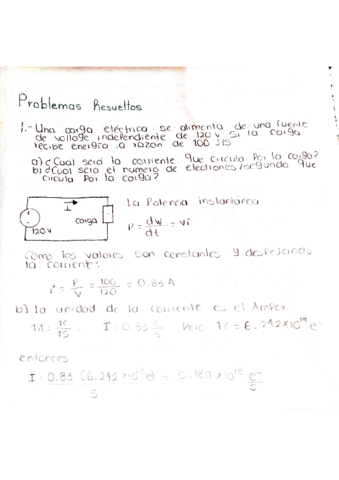 Problemas Resueltos
1.- Una carga eléctrica se alimenta de una fuente
de voltage independiente de 120 v. Si la carga
recibe energía a razon de 100 J/S
a) ¿Cual será la corriente que circula Por la carga?
b) ¿Cual será el numero de electrones/segundo que
circula Por la carga?
I
carga
120 v
La Potencia instantánea
P = dw/dt = vi
Como los valores son constantes y despejando
la corriente:
i = P/V = 100/120 = 0.83 A
b) la unidad de la corriente es el Amper.
1A = 1C/1S . I = 0.83 C/S Pero 1C = 6.242x10¹⁸ e⁻
entonces
I = 0.83 (6.242 x10¹⁸)/S = 5.180 x 10¹⁸ e⁻/S